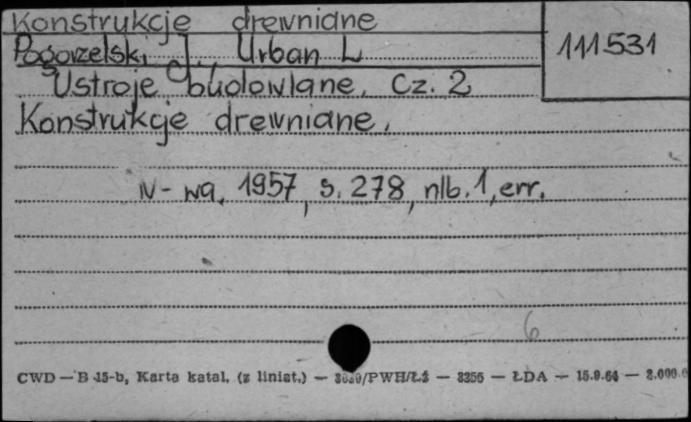 Konstrukcje drewniane
Pogorzelski J., Urban L
111531
Ustroje budowlane, Cz. 2
Konstrukcje drewniane,
W-wa, 1957, s. 278, nlb. 1, err.
6
CWD — B 15-b, Karta katal. (z liniat.) — /PWH/Ł2 — 8256 — ŁDA — 15.9.64 — 2.000.0